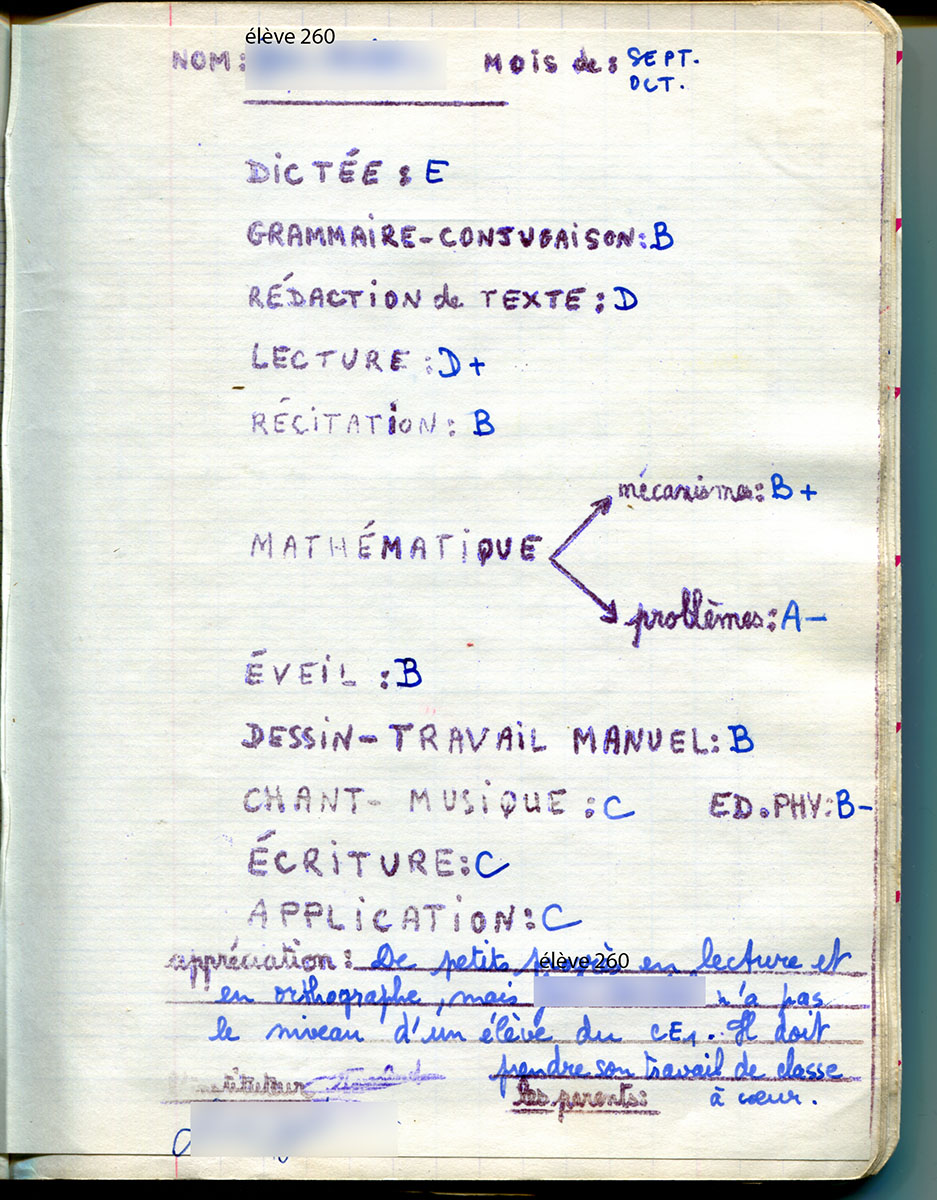 élève 260
NOM: MOIS de: SEPT.
OCT.
DICTÉE : E
GRAMMAIRE-CONJUGAISON: B
RÉDACTION de TEXTE : D
LECTURE : D+
RÉCITATION : B
mécanismes: B+
MATHÉMATIQUE
problèmes: A-
ÉVEIL : B
DESSIN-TRAVAIL MANUEL: B
CHANT-MUSIQUE : C ED.PHY: B-
ÉCRITURE: C
APPLICATION: C
élève 260
appréciation : De petits progrès en lecture et
en orthographe, mais n'a pas
le niveau d'un élève du CE1. Il doit
prendre son travail de classe
à cœur.
les parents: